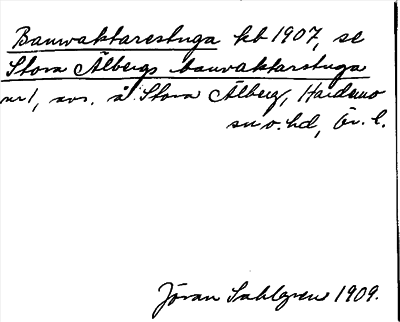 Banvaktarestuga kb 1907, se
Stora Älbergs banvaktarstuga
nr 1, avs. å Stora Älberg, Hardemo
sn o. hd, Ör. l.
Jöran Sahlgren 1909.